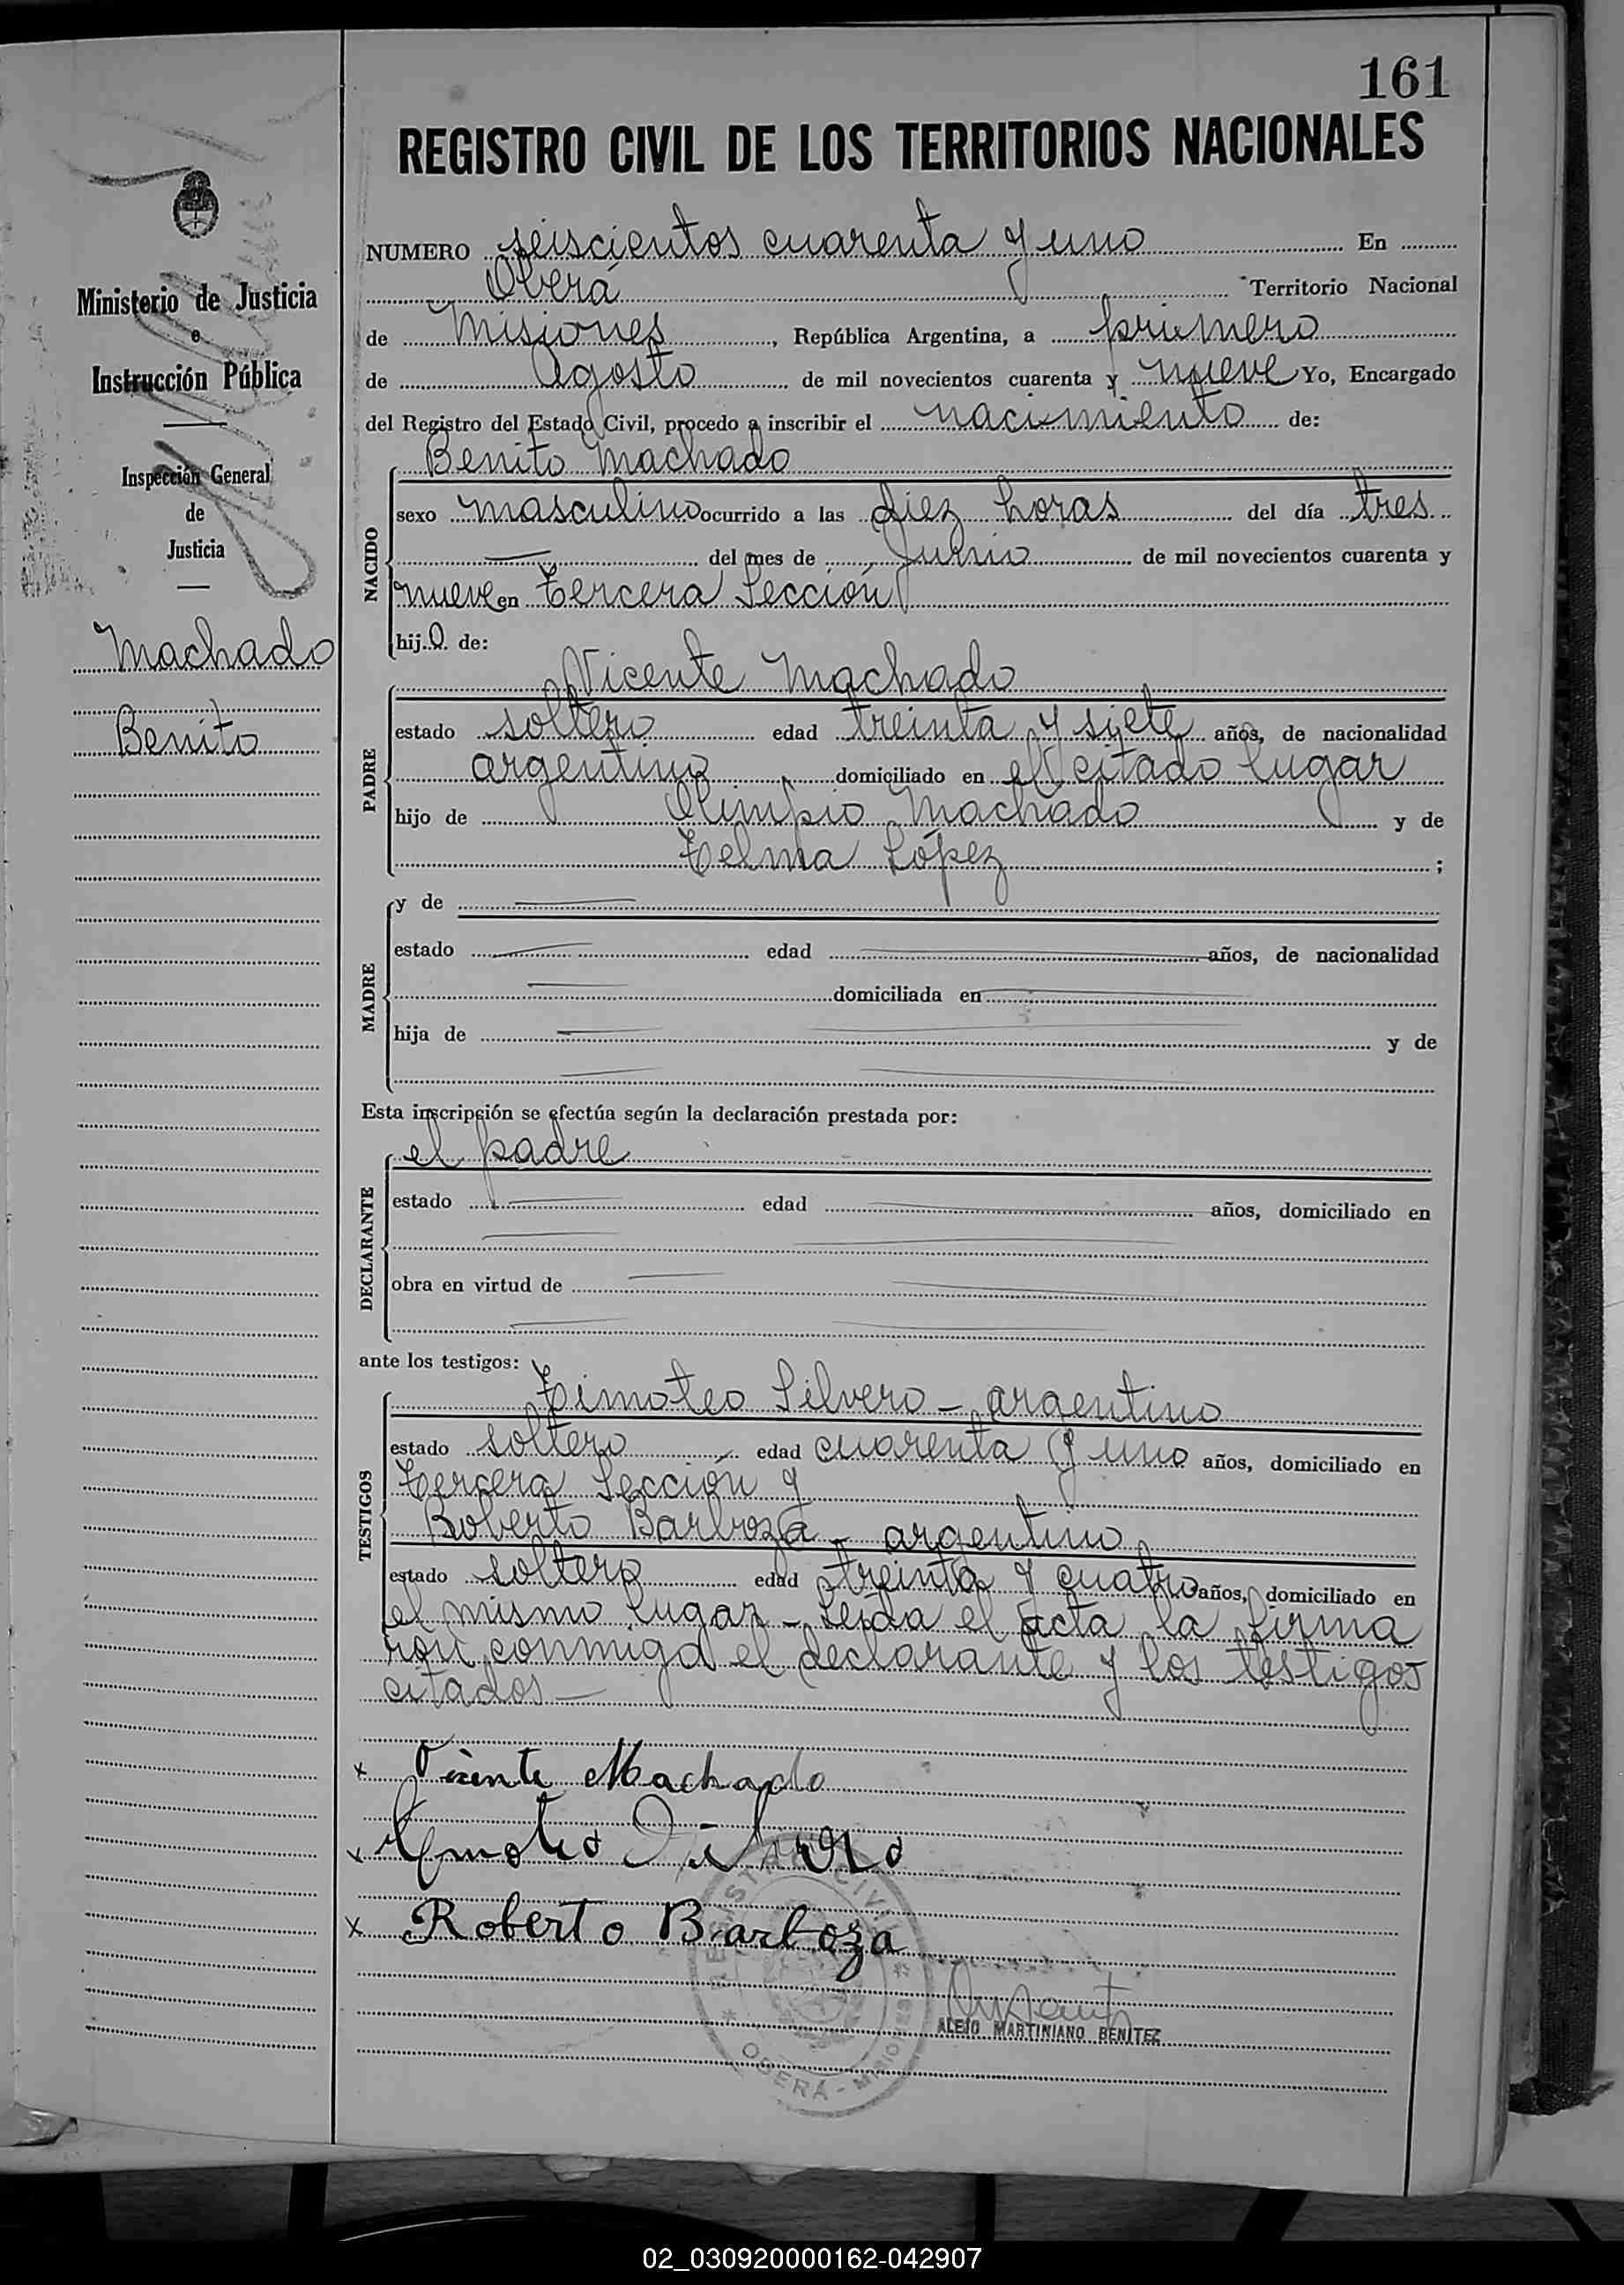 161
REGISTRO CIVIL DE LOS TERRITORIOS NACIONALES
NUMERO seiscientos cuarenta y uno En
Oberá Territorio Nacional
de Misiones, República Argentina, a primero
de Agosto de mil novecientos cuarenta y nueve Yo, Encargado
del Registro del Estado Civil, procedo a inscribir el nacimiento de:
Ministerio de Justicia
e
Instrucción Pública
Inspección General
de
Justicia
Machado
Benito
NACIDO
Benito Machado
sexo masculino ocurrido a las diez horas del día tres
del mes de Junio de mil novecientos cuarenta y
nueve en Tercera Sección
hijo de:
PADRE
Vicente Machado
estado soltero edad treinta y siete años, de nacionalidad
argentino domiciliado en el citado lugar
hijo de Olimpio Machado y de
Telma López ;
MADRE
y de
estado edad años, de nacionalidad
domiciliada en
hija de y de
Esta inscripción se efectúa según la declaración prestada por:
DECLARANTE
el padre
estado edad años, domiciliado en
obra en virtud de
ante los testigos:
TESTIGOS
Timoteo Silvero - argentino
estado soltero edad cuarenta y uno años, domiciliado en
Tercera Sección y
Roberto Barboza - argentino
estado soltero edad treinta y cuatro años, domiciliado en
el mismo lugar - Leida el acta la firma
ron conmigo el declarante y los testigos
citados -
x Vicente Machado
x Timoteo Silvero
x Roberto Barboza
REGISTRO CIVIL
OBERÁ - MISIONES
ALEJO MARTINIANO BENITEZ
02_030920000162-042907